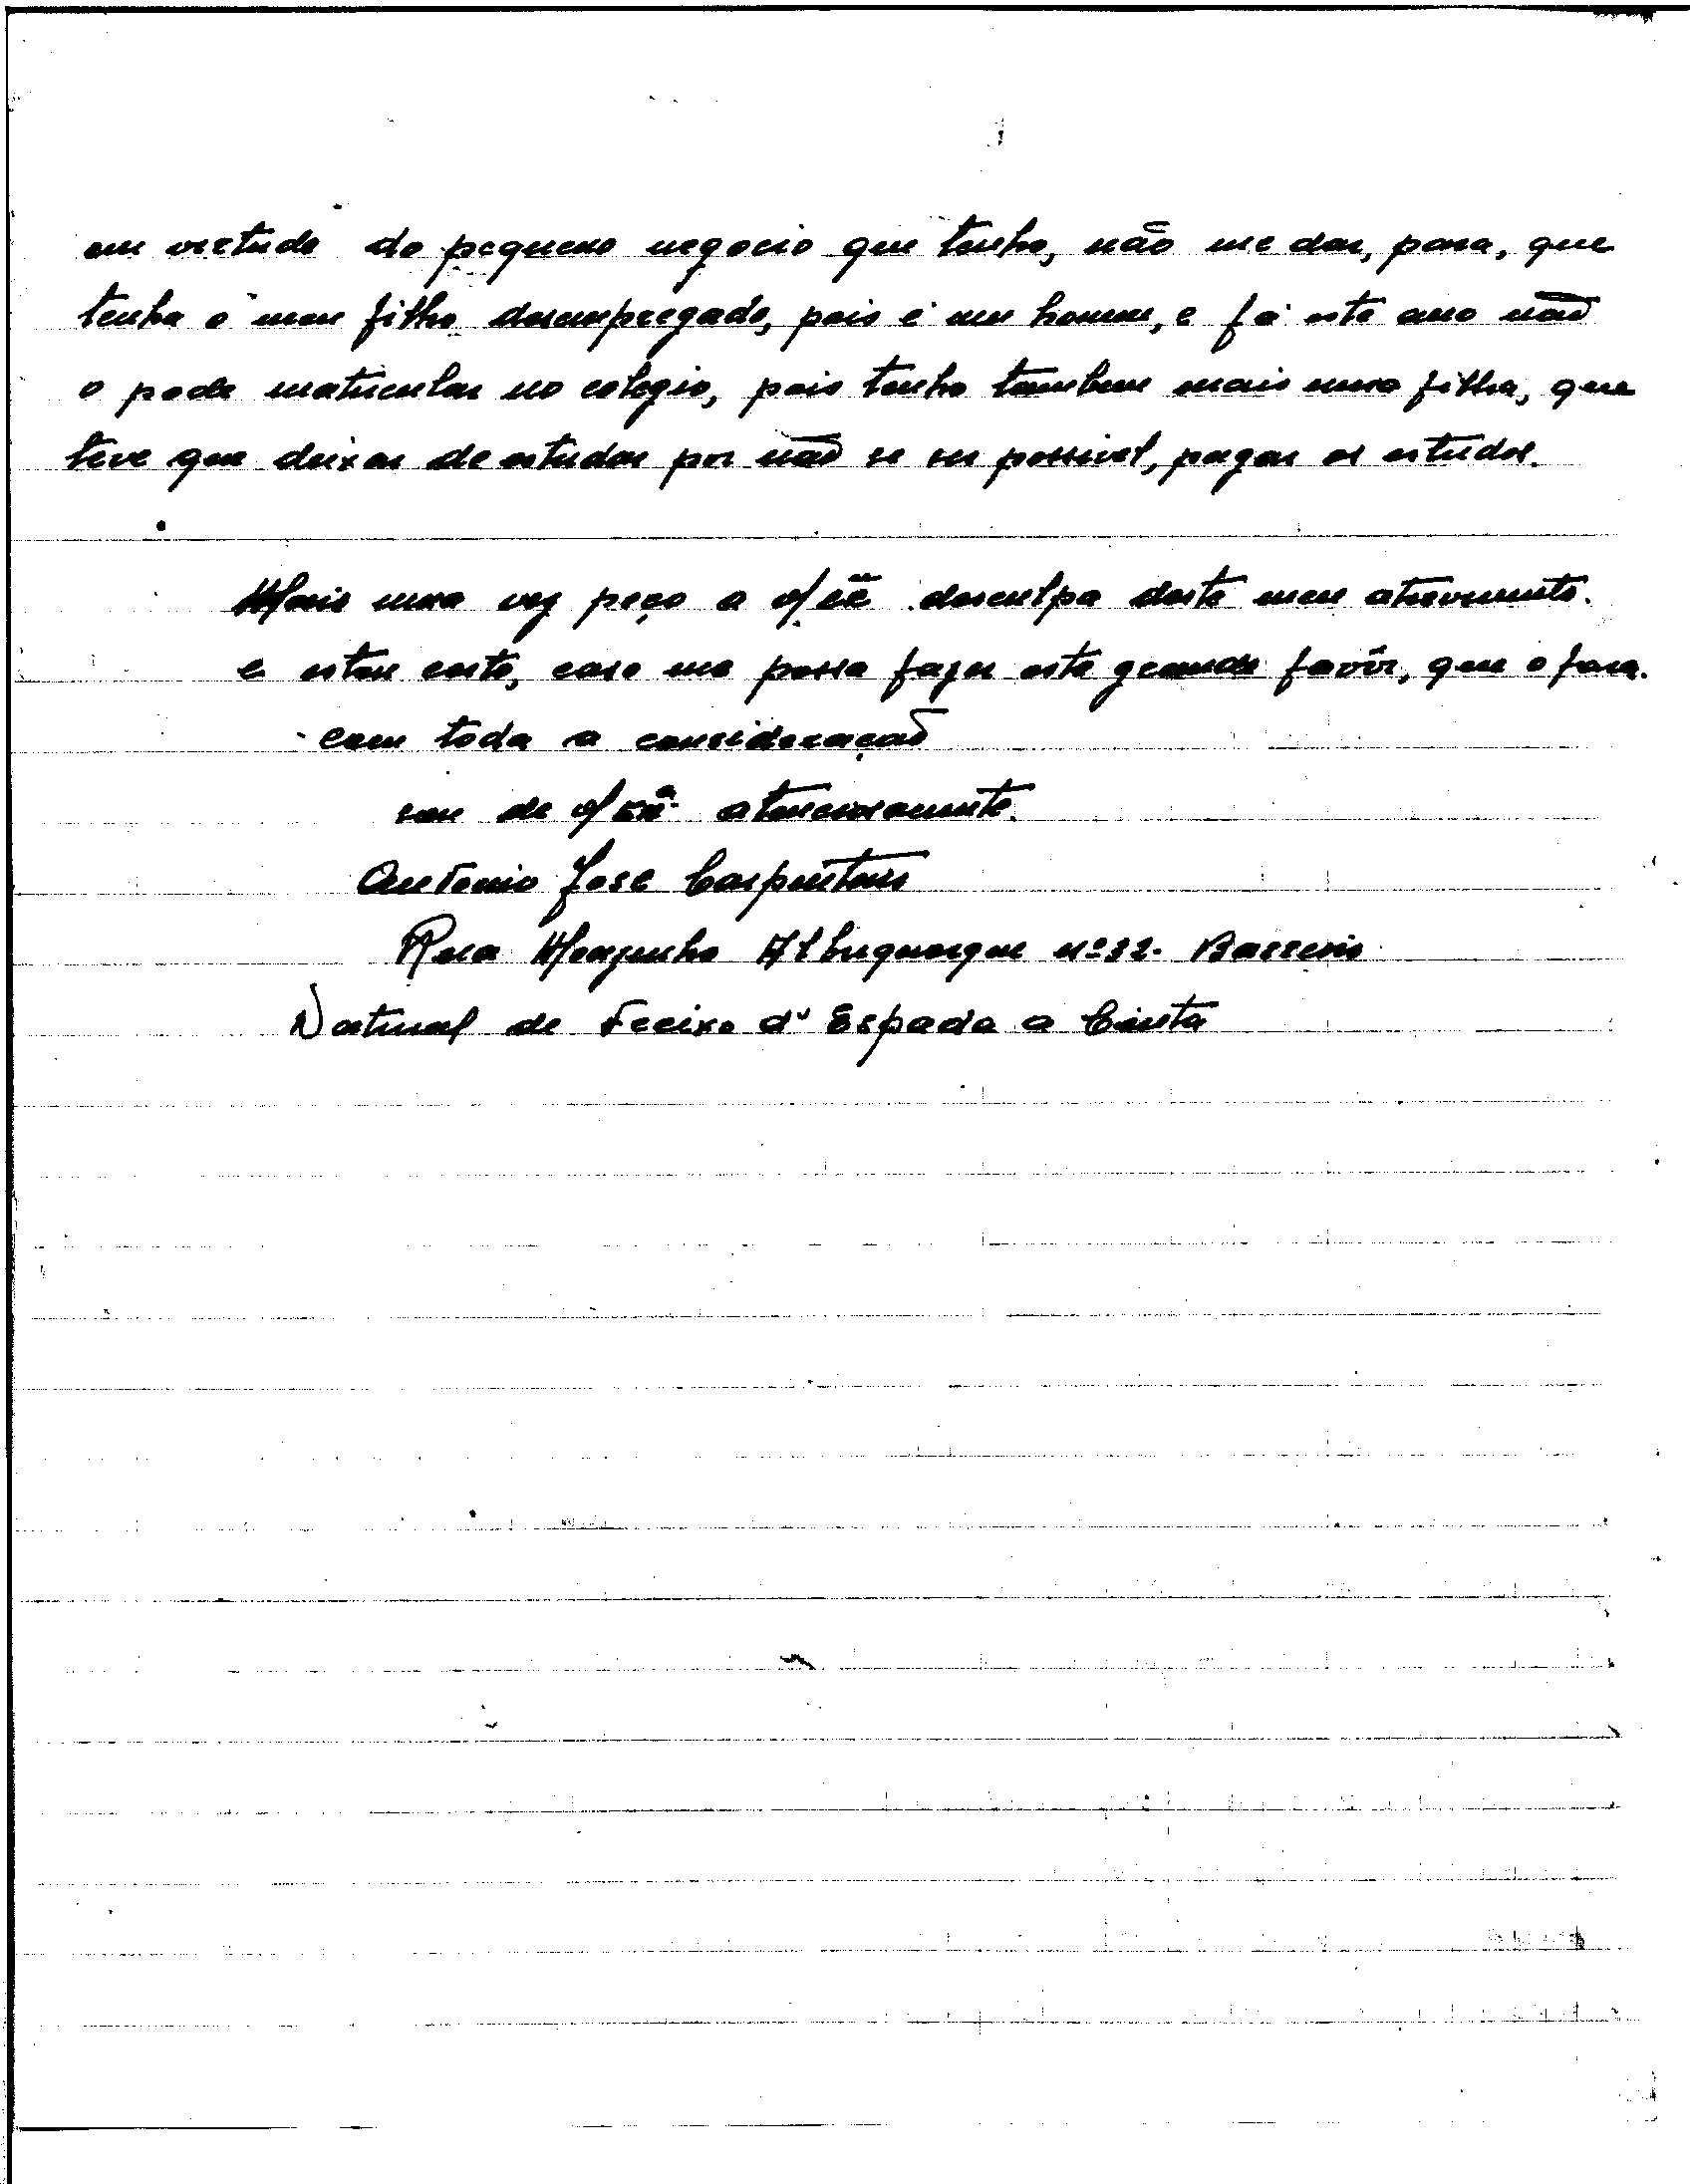 em virtude do pequeno negocio que tenho, não me dar, para, que
tenha o meu filho desempregado, pois é um homem, e já este ano não
o pode matricular no colegio, pois tenho tambem mais uma filha, que
teve que deixar de estudar por não se ser possivel, pagar os estudos.
Mais uma vez peço a v/ desculpa deste meu atrevimento.
e estou certo, caso me possa fazer este grande favôr, que o fara.
com toda a consideração
sou de v/ Exª. atenciosamente.
Antonio José Carpinteiro
Rua Mouzinho Albuquerque nº 32. Barreiro
Natural de Freixo d' Espada a Cinta